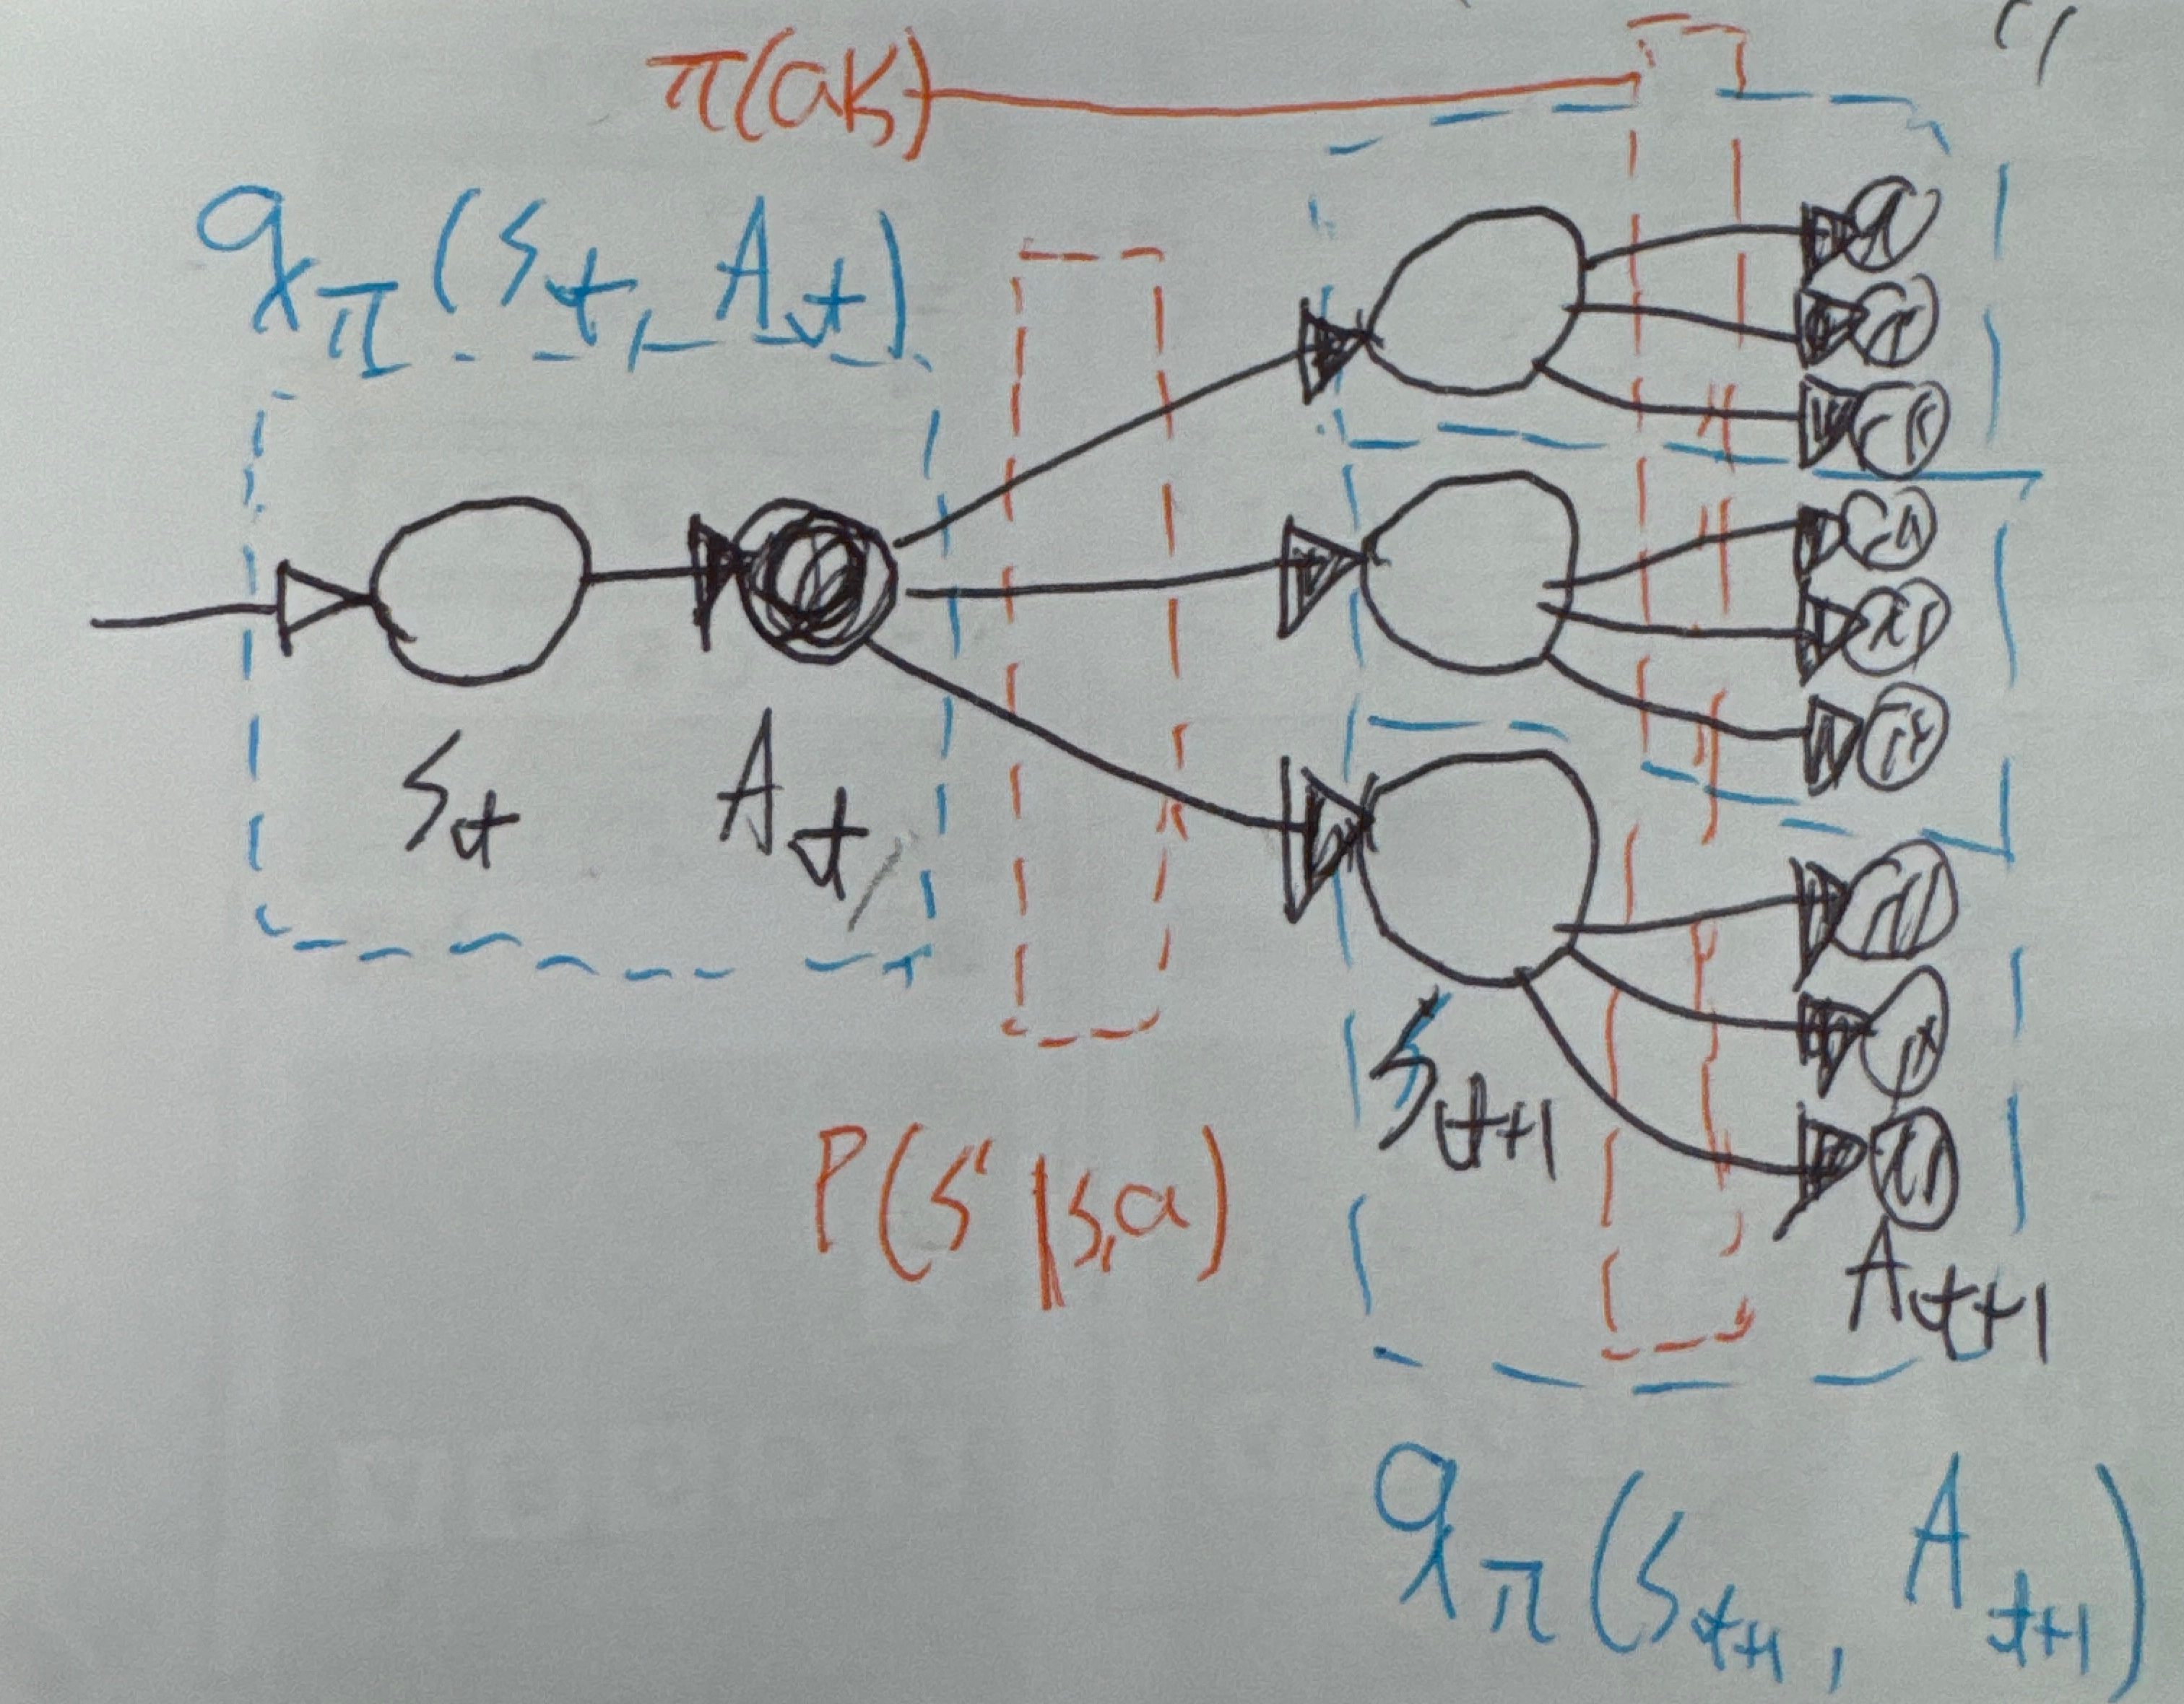 π(a|s)
qπ(St, At)
St
At
P(s'|s,a)
St+1
At+1
qπ(St+1, At+1)